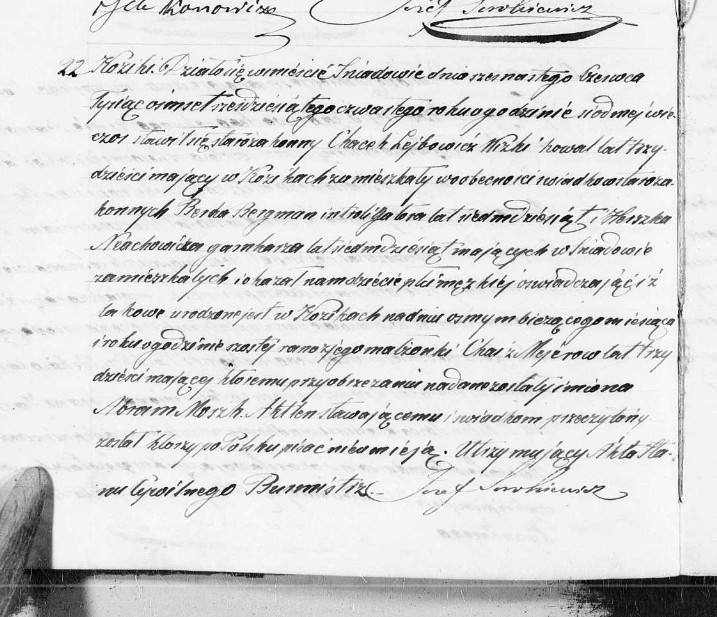 Konowicz Józef
22 Koziki. Działo się w mieście Śniadowie dnia szesnastego Czerwca
tysiąc ośmset sześdziesiątego czwartego roku o godzinie siodmej wie-
czor stawił się starozakonny Chacek Lejbowicz kowal lat trzy-
dzieści mający w Kozikach zamieszkały w obecności świadkow staroza-
konnych Berka Bergman introligatora lat siedmdziesiąt i Herszka
garbarza lat siedmdziesiąt mających w Śniadowie
zamieszkałych i okazał nam dziecie płci męzkiej oswiadczając iż
takowe urodzone jest w Kozikach na dniu osmym bieżącego miesiąca
i roku o godzinie szostej rano z jego małżonki Chai z Mejerow lat trzy
dzieści mającej ktoremu przy obrzezaniu nadane zostały imiona
Abram Moszk. Akt ten stawającemu i swiadkom przeczytany
został ktorzy po Polsku pisać nie umieją. Utrzymujący Akta Sta-
nu Cywilnego Burmistrz Józef